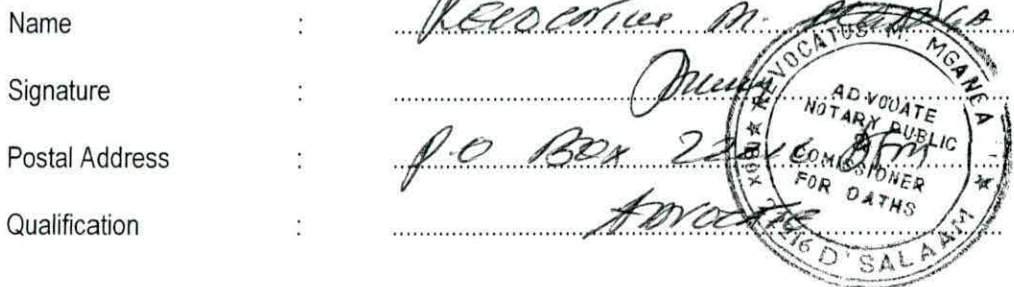 Name : Revocatus M. Mganga
Signature :
Postal Address : P.O Box DSM
Qualification : Advocate
REVOCATUS M. MGANGA
ADVOCATE
NOTARY PUBLIC
&
COMISSIONER
FOR OATHS
BOX D' SALAAM